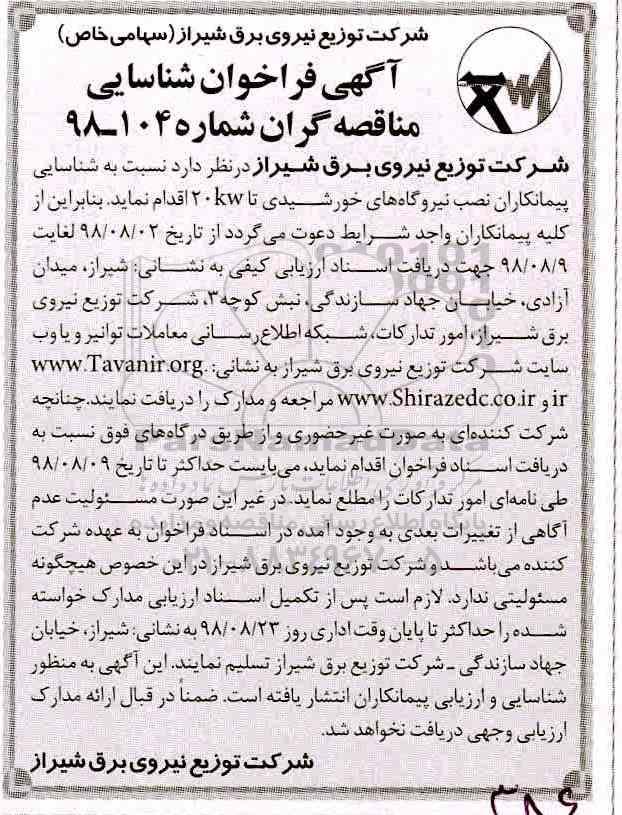 شرکت توزیع نیروی برق شیراز (سهامی خاص)
آگهی فراخوان شناسایی
مناقصه گران شماره ۱۰۴ـ۹۸
شرکت توزیع نیروی برق شیراز درنظر دارد نسبت به شناسایی
پیمانکاران نصب نیروگاه‌های خورشیدی تا ۲۰kw اقدام نماید. بنابراین از
کلیه پیمانکاران واجد شرایط دعوت می گردد از تاریخ ۹۸/۰۸/۰۲ لغایت
۹۸/۰۸/۹ جهت دریافت اسناد ارزیابی کیفی به نشانی: شیراز، میدان
آزادی، خیابان جهاد سازندگی، نبش کوچه ۳، شرکت توزیع نیروی
برق شیراز، امور تدارکات، شبکه اطلاع رسانی معاملات توانیر و یا وب
سایت شرکت توزیع نیروی برق شیراز به نشانی: www.Tavanir.org.
ir و www.Shirazedc.co.ir مراجعه و مدارک را دریافت نمایند. چنانچه
شرکت کننده‌ای به صورت غیر حضوری و از طریق درگاه‌های فوق نسبت به
دریافت اسناد فراخوان اقدام نماید، می‌بایست حداکثر تا تاریخ ۹۸/۰۸/۰۹
طی نامه‌ای امور تدارکات را مطلع نماید. در غیر این صورت مسئولیت عدم
آگاهی از تغییرات بعدی به وجود آمده در اسناد فراخوان به عهده شرکت
کننده می‌باشد و شرکت توزیع نیروی برق شیراز در این خصوص هیچگونه
مسئولیتی ندارد. لازم است پس از تکمیل اسناد ارزیابی مدارک خواسته
شده را حداکثر تا پایان وقت اداری روز ۹۸/۰۸/۲۳ به نشانی: شیراز، خیابان
جهاد سازندگی ـ شرکت توزیع برق شیراز تسلیم نمایند. این آگهی به منظور
شناسایی و ارزیابی پیمانکاران انتشار یافته است. ضمناً در قبال ارائه مدارک
ارزیابی وجهی دریافت نخواهد شد.
شرکت توزیع نیروی برق شیراز
ParsNamadData
پایگاه اطلاع رسانی مناقصه و مزایده
۰۲۱-۸۸۳۴۹۶۷۰-۵